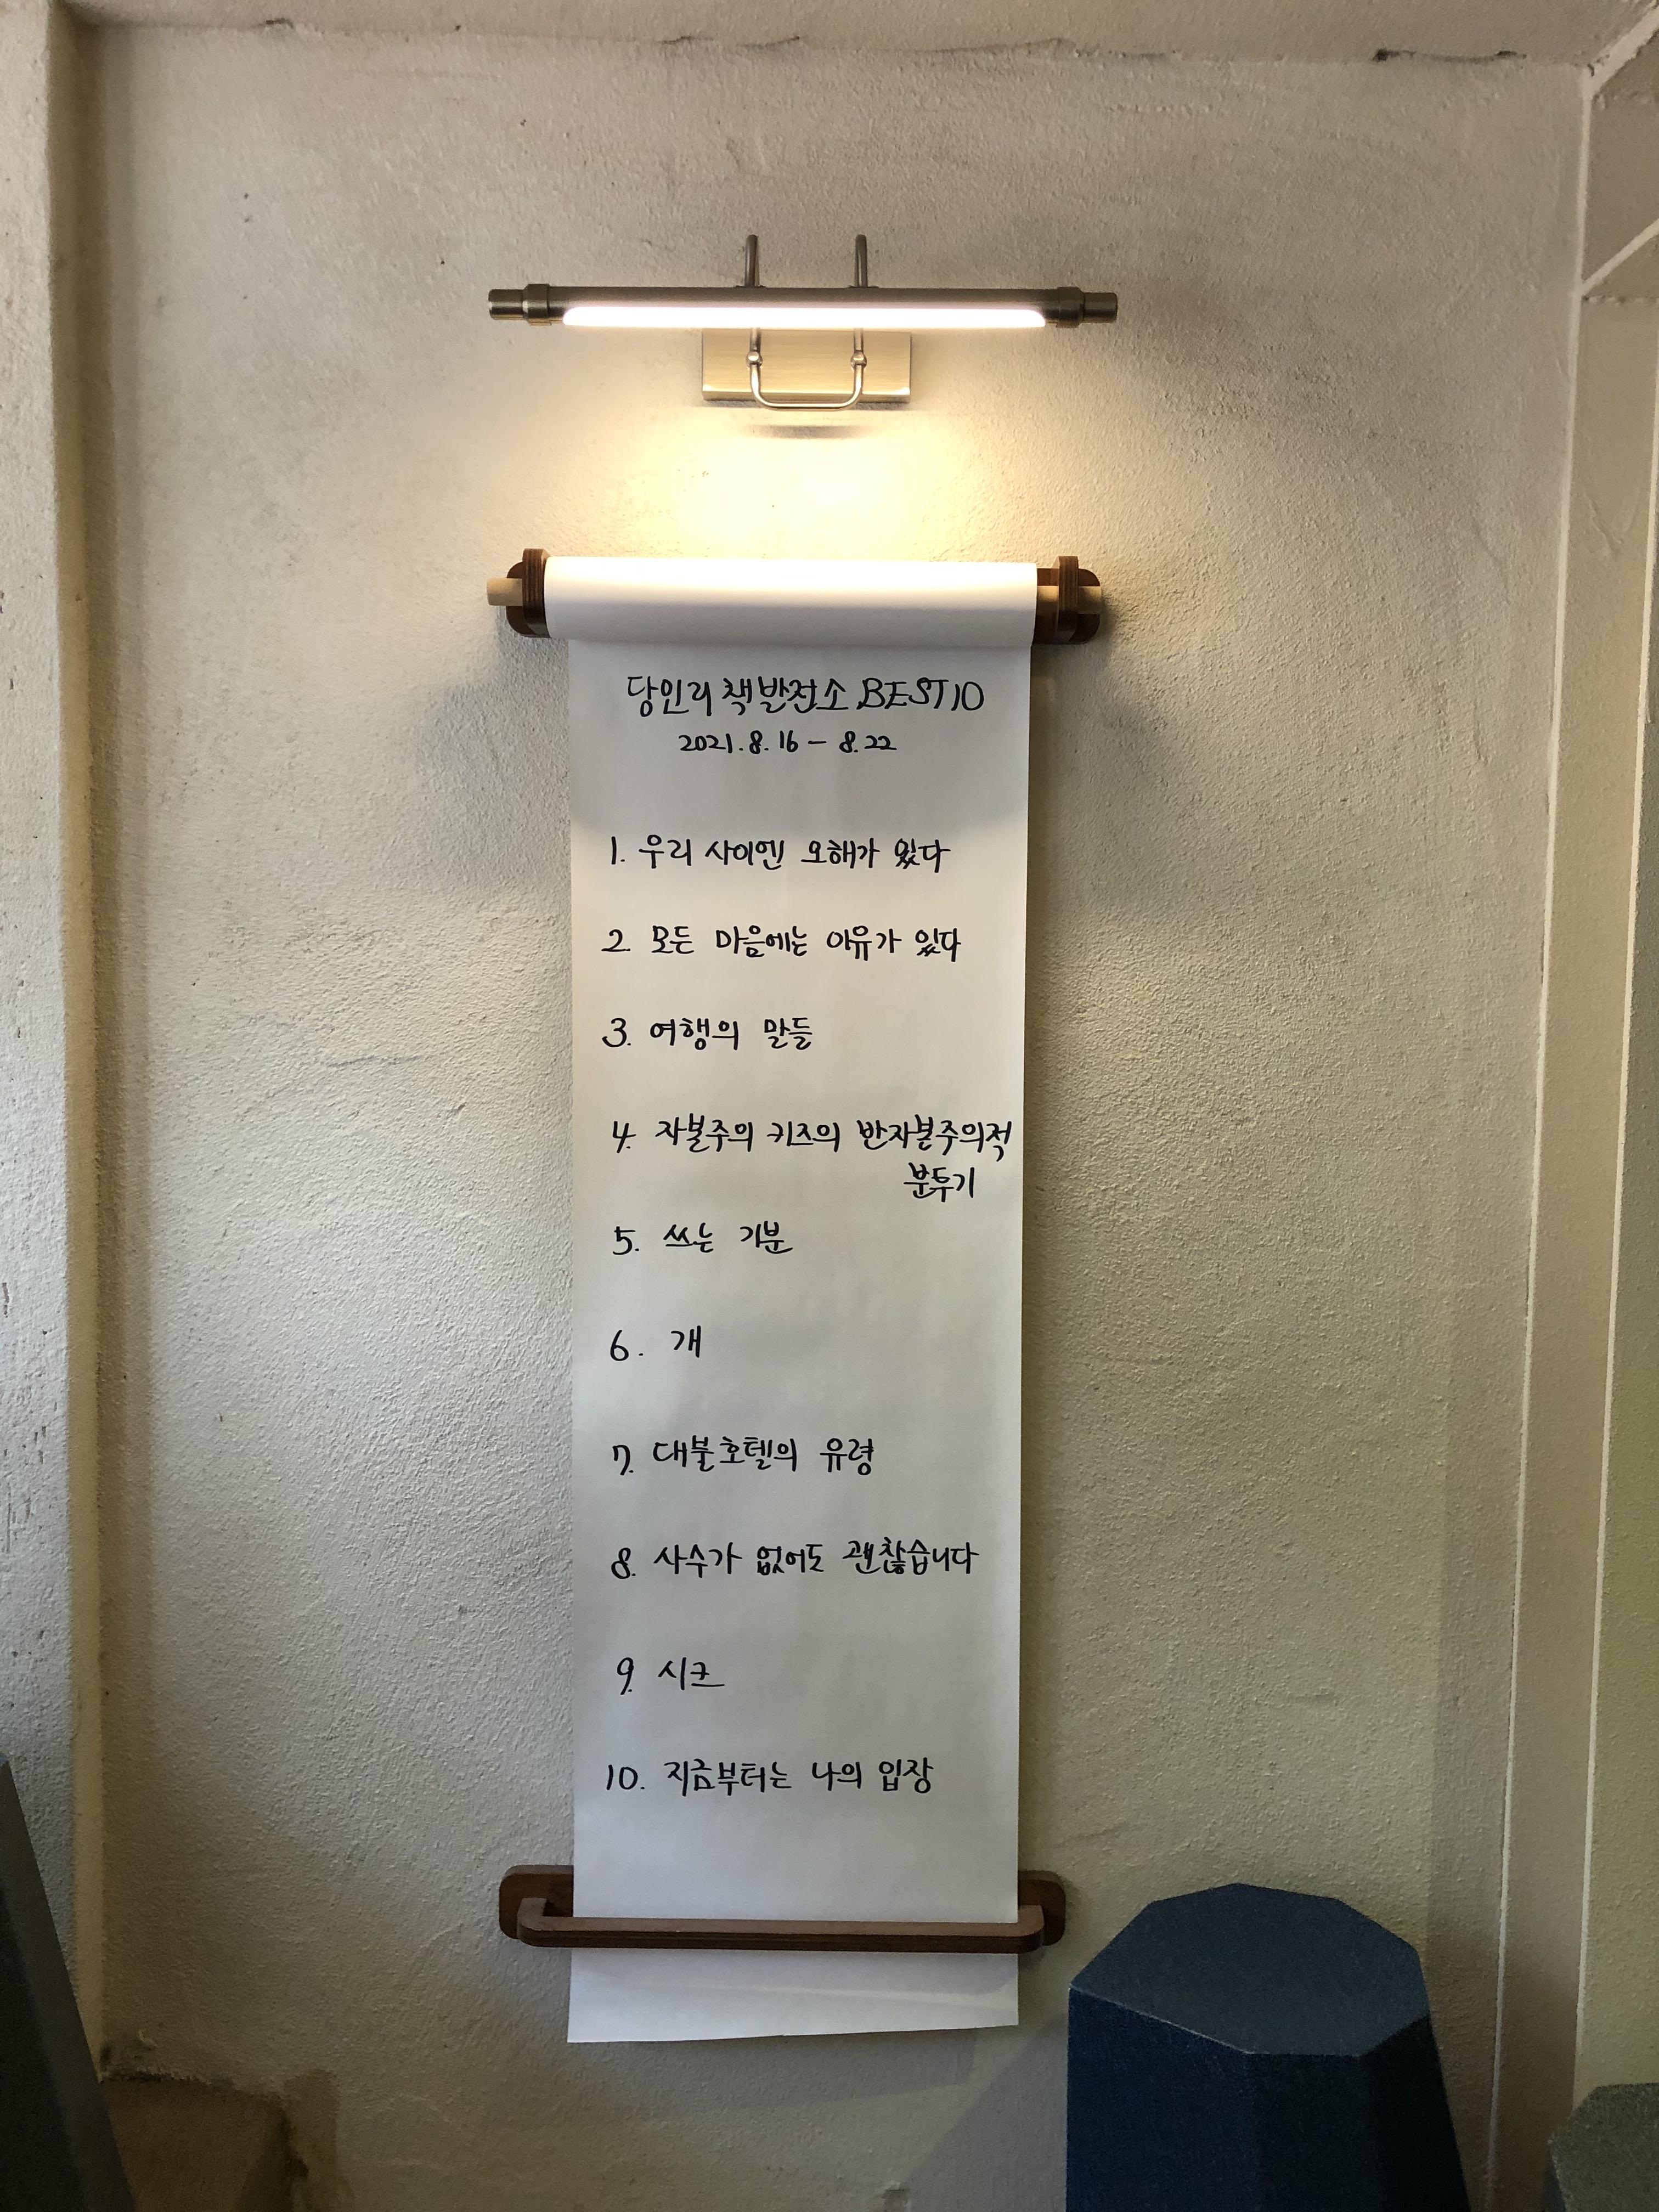 당인리 책발전소 BEST 10
2021. 8. 16 - 8. 22
1. 우리 사이엔 오해가 있다
2. 모든 마음에는 이유가 있다
3. 여행의 말들
4. 자본주의 키즈의 반자본주의적
분투기
5. 쓰는 기분
6. 개
7. 대불호텔의 유령
8. 사수가 없어도 괜찮습니다
9. 시크
10. 지금부터는 나의 입장